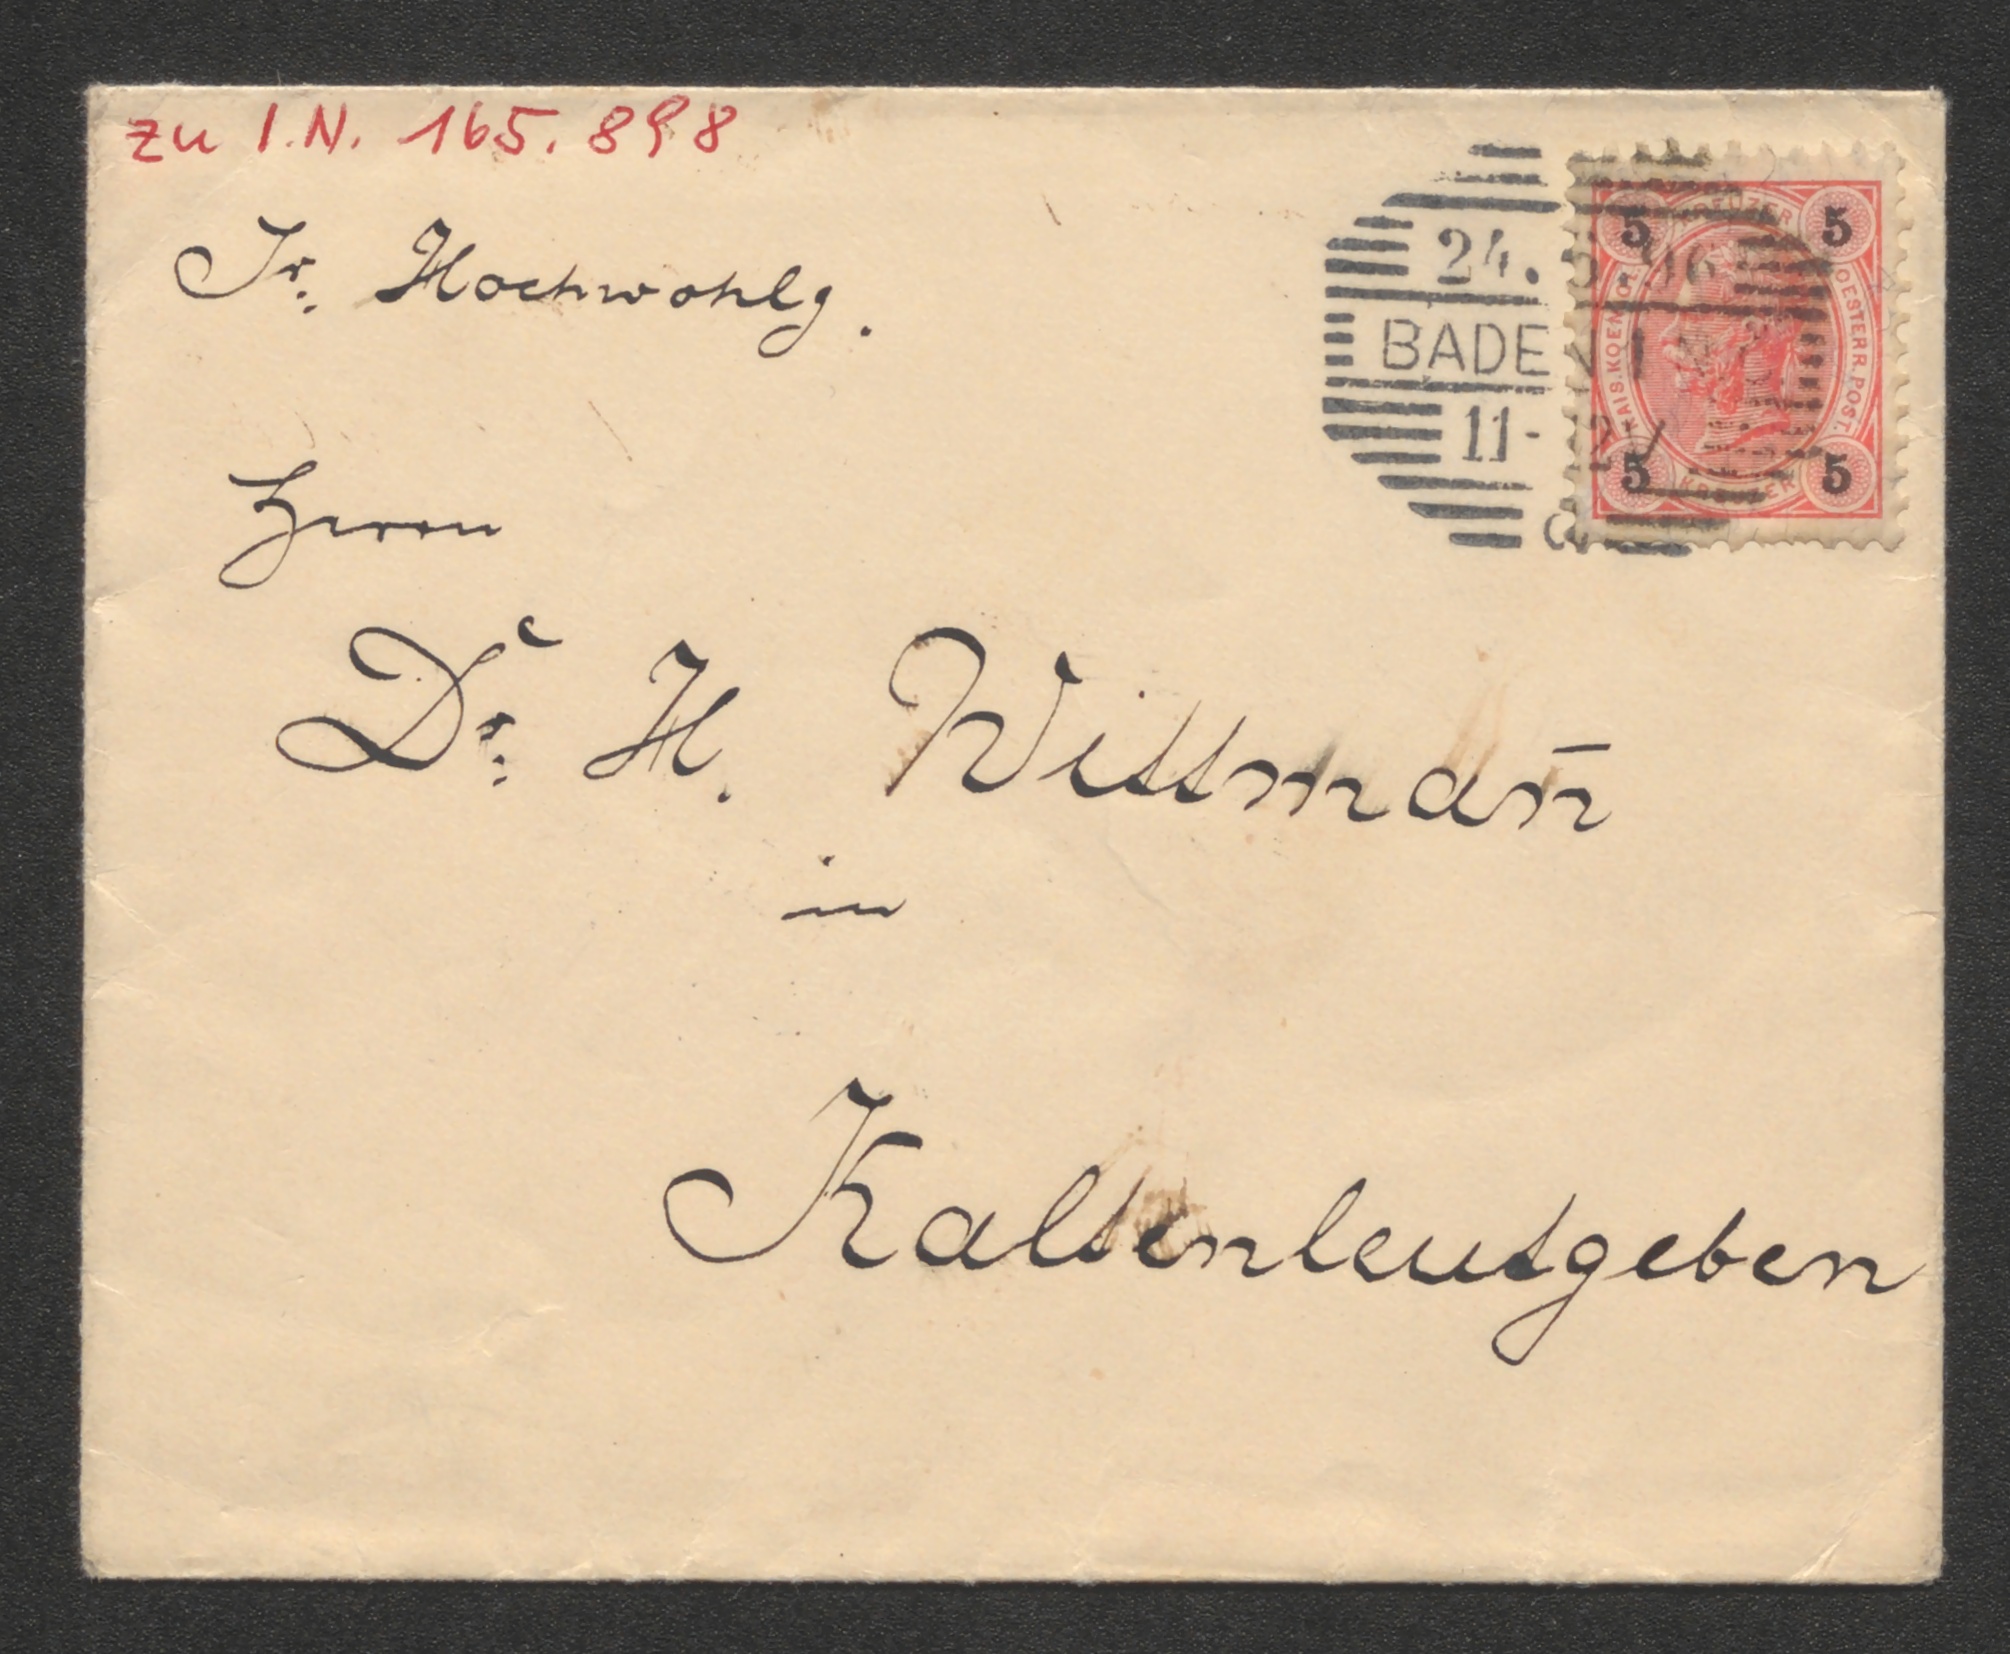 zu I.N. 165.898
Sr. Hochwohlg.
Herrn
Dr. H. Wittman̄
in
Kaltenleutgeben
24. 5. 96
BADEN I N
11-12/
5 KREUZER 5
KAIS. KOEN. OESTERR. POST.
5 KREUZER 5